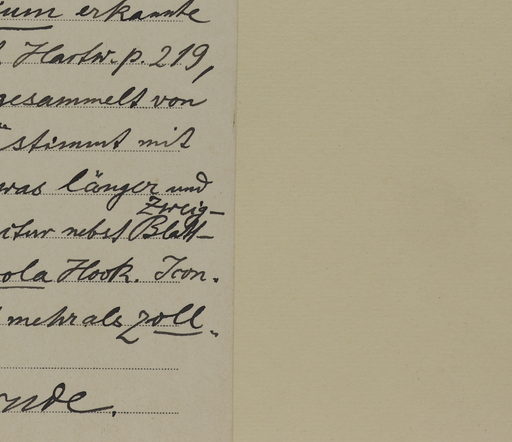 ium erkannte
Hartw. p. 219,
gesammelt von
stimmt mit
was länger und
Zweig-
itur nebst Blatt-
ola Hook. Icon.
mehr als zoll-
nde.